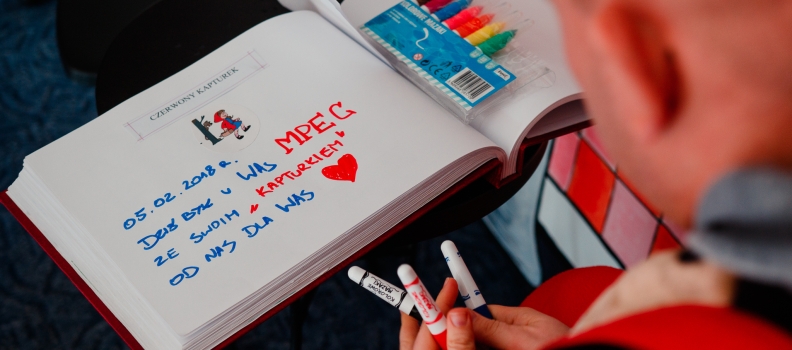 CZERWONY KAPTUREK
05.02.2018 R.
DZIŚ BYŁ U WAS MPEC
ZE SWOIM "KAPTURKIEM"
OD NAS DLA WAS
KOLOROWE MAZAKI